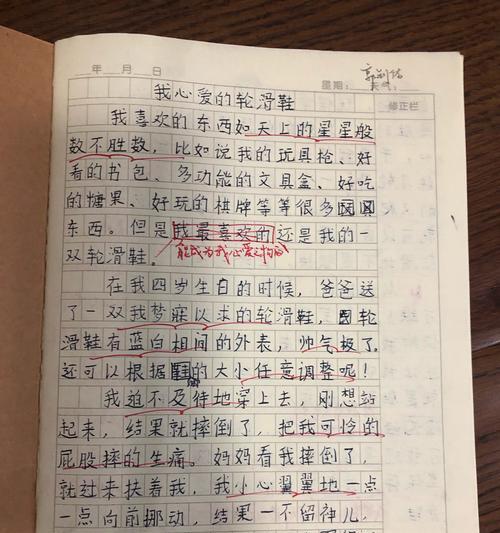 年 月 日
星期：
修正栏
我心爱的轮滑鞋
我喜欢的东西如天上的星星般
数不胜数，比如说我的玩具枪、好
看的书包、多功能的文具盒、好吃
的糖果、好玩的棋牌等等很多
东西。但是我最喜欢的还是我的一
能成为我心爱之物的
双轮滑鞋。
在我四岁生日的时候，爸爸送
了一双我梦寐以求的轮滑鞋，轮
滑鞋有蓝白相间的外表，帅气极了。
还可以根据的大小任意调整呢！
我迫不及待地穿上去，刚想站
起来，结果就摔倒了，把我可怜的
屁股摔的生痛。妈妈看我摔倒了，
就过来扶着我，我小心翼翼地一点
一点向前挪动，结果一不留神儿，